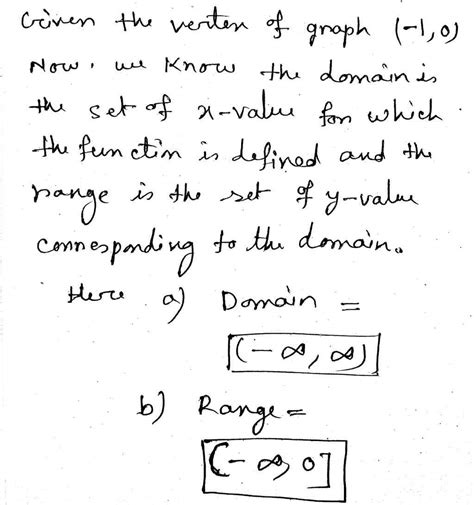 Given the vertex of graph (-1,0)
Now, we know the domain is
the set of x-value for which
the function is defined and the
range is the set of y-value
corresponding to the domain.
Here a) Domain =
(-∞, ∞)
b) Range =
(-∞, 0]